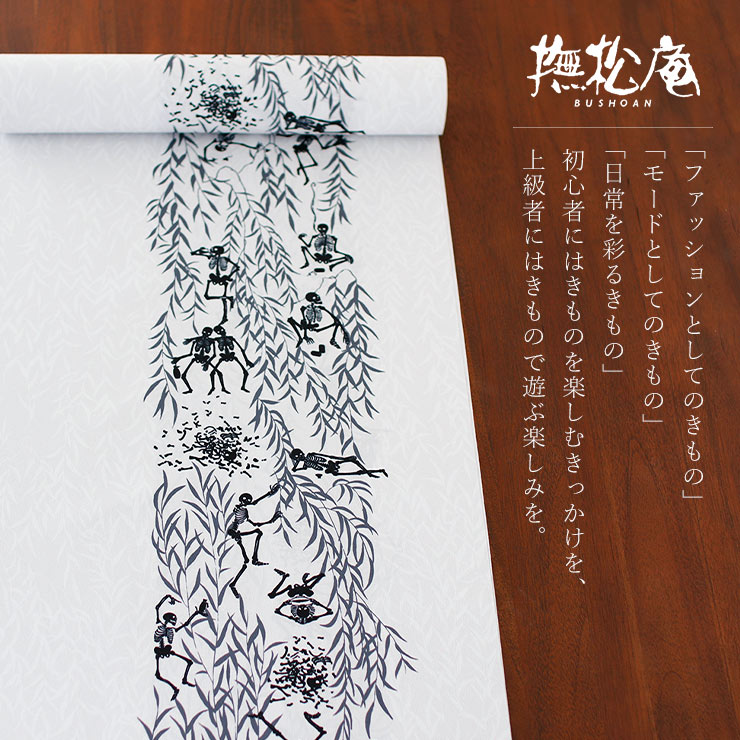 撫松庵
BUSHOAN
「ファッションとしてのきもの」
「モードとしてのきもの」
「日常を彩るきもの」
初心者にはきものを楽しむきっかけを、
上級者にはきもので遊ぶ楽しみを。